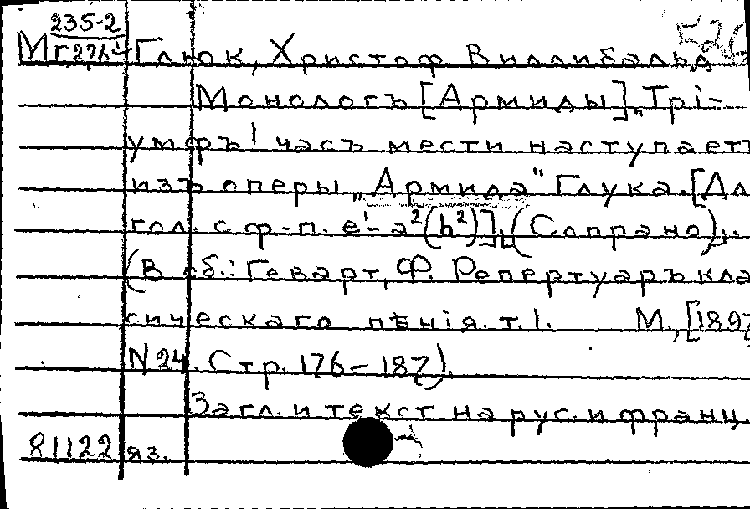 235-2
Мг Глюк, Христоф Виллибальд
Монологъ [Армиды] „Трi-
умфъ! часъ мести наступаетъ
изъ оперы „Армида" Глука. [Дл
гол. с ф-п. e¹-a²(h²)], (Сопрано),.
(В сб.: Геварт, Ф. Репертуаръ кла
сическаго пѣнiя. т.1. М., [189
N 24. Стр. 176-187).
Загл. и текст на рус. и франц.
81122 яз.